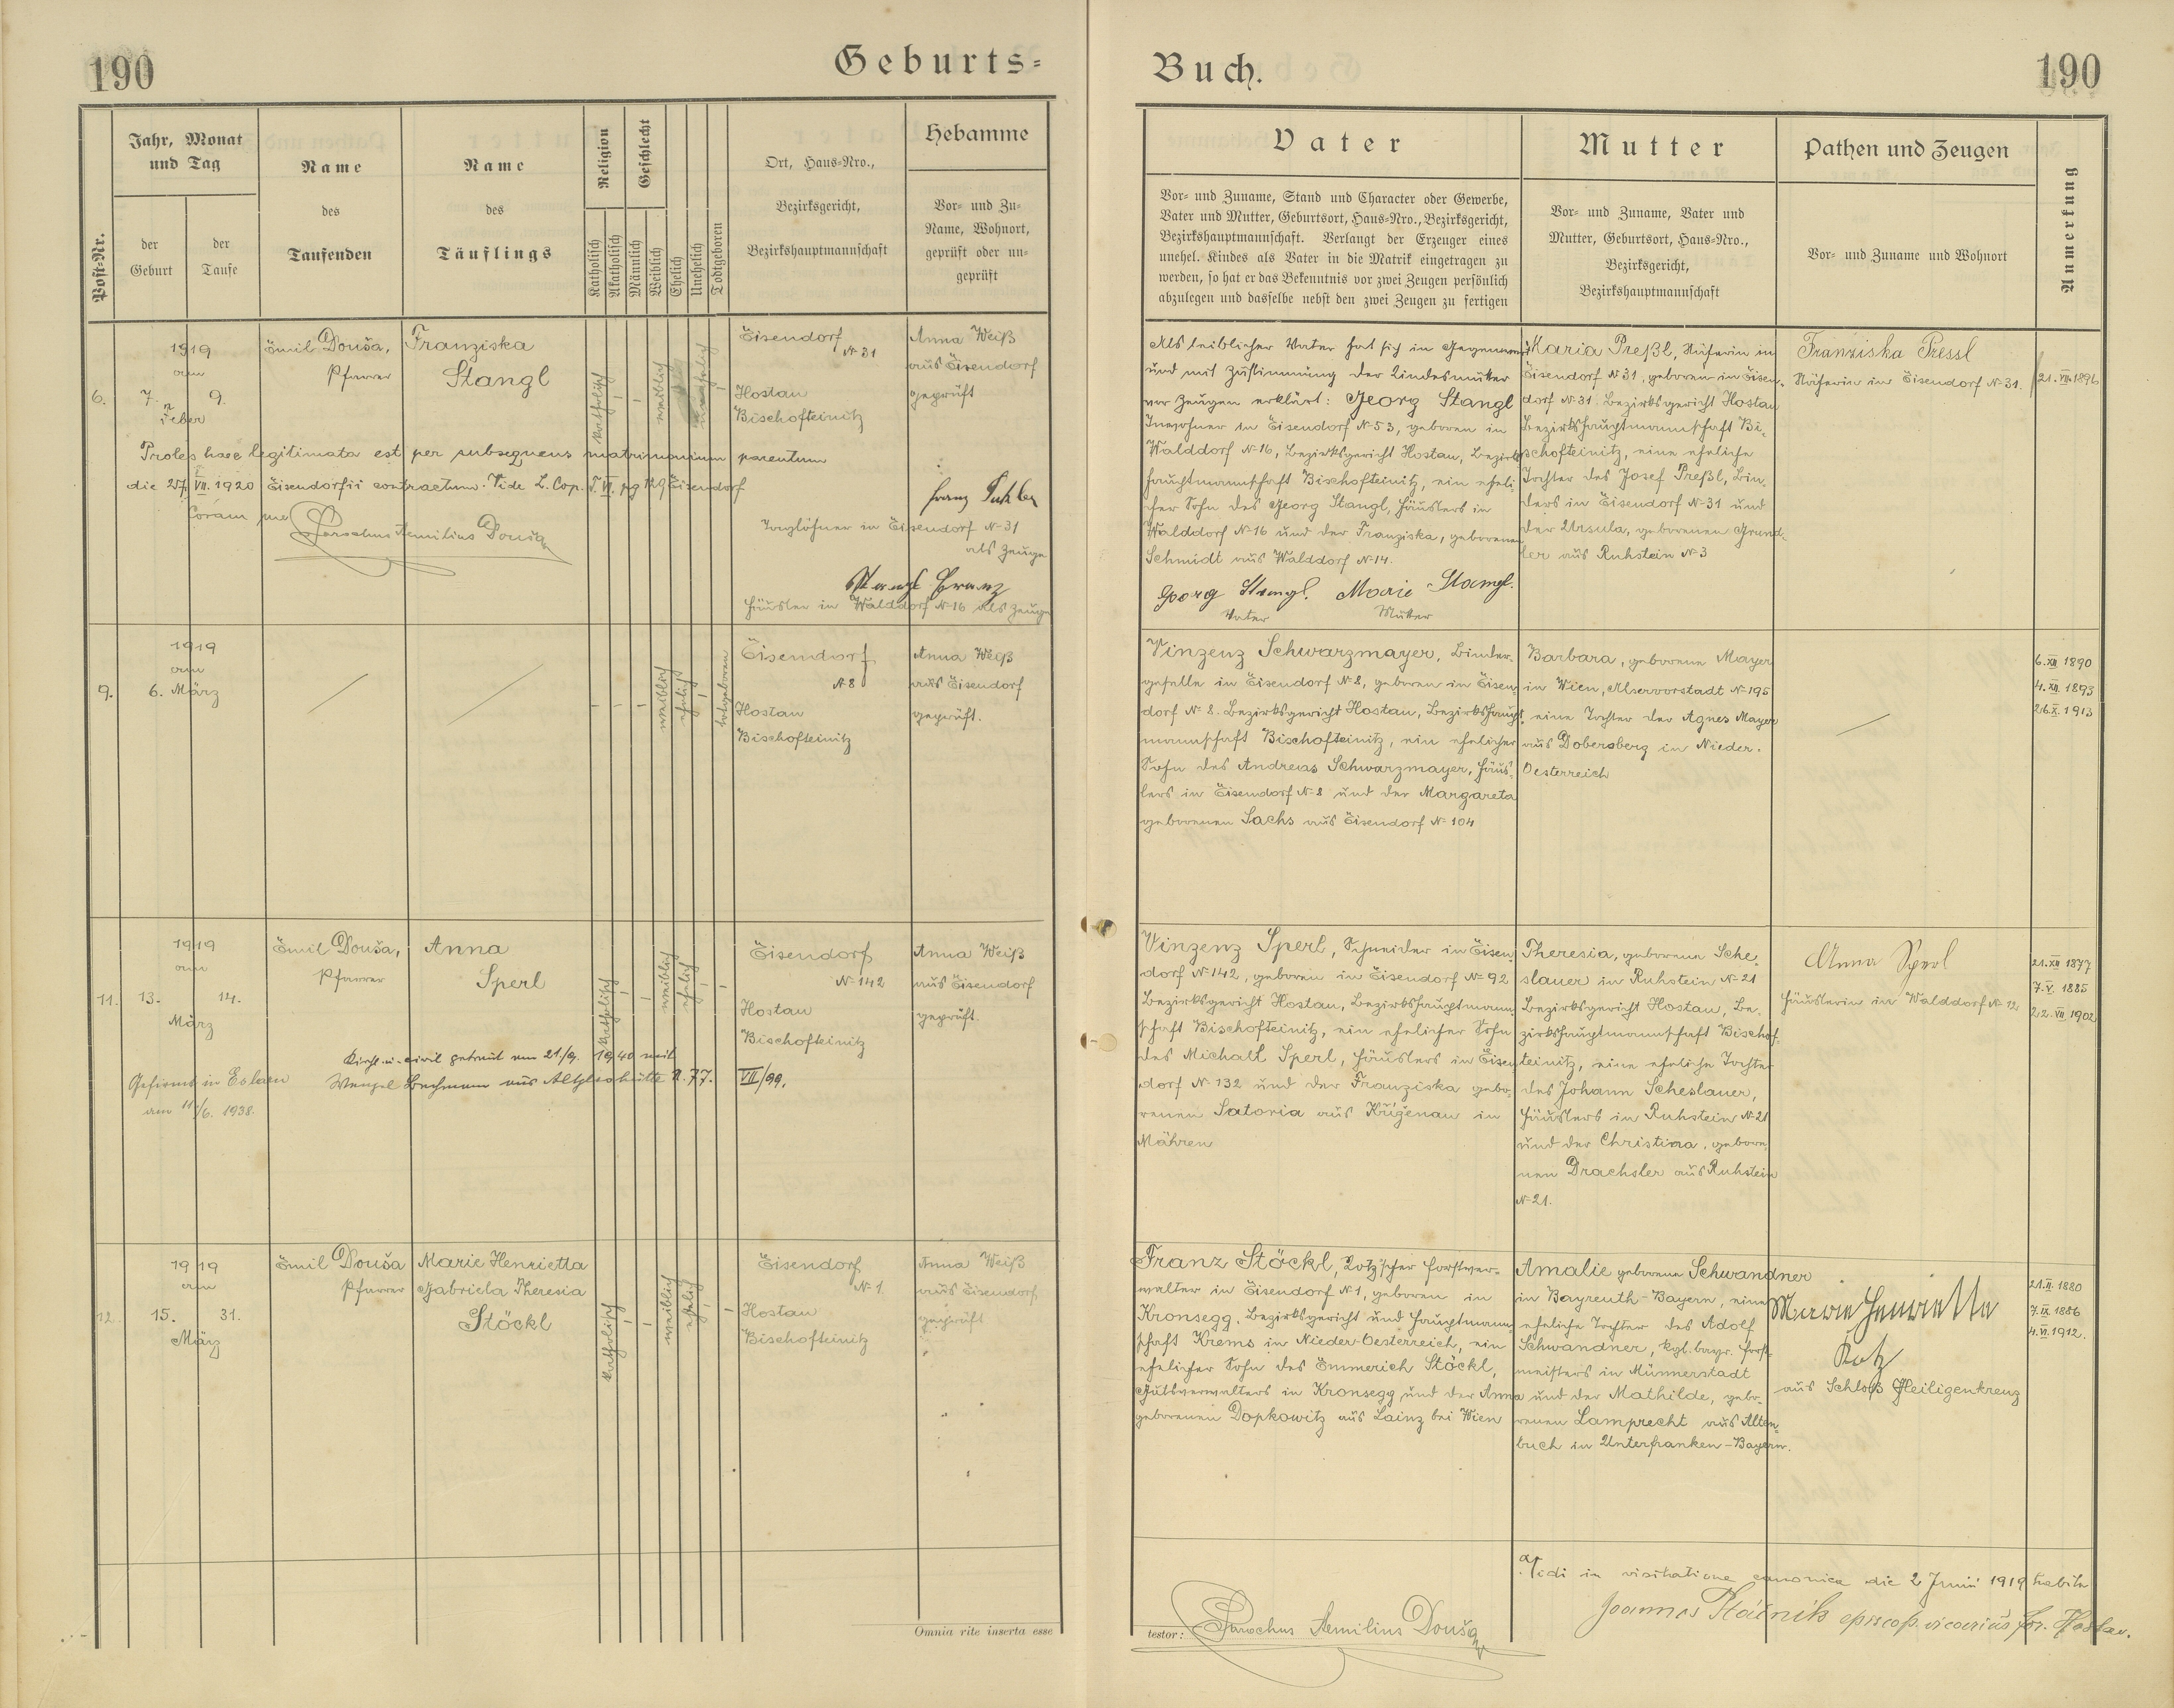 190
Geburts-
Buch.
190
Post-Nr.
Jahr, Monat
und Tag
der
Geburt
der
Taufe
Name
des
Taufenden
Name
des
Täuflings
Religion
Katholisch
Akatholisch
Geschlecht
Männlich
Weiblich
Ehelich
Unehelich
Todtgeboren
Ort, Haus-Nro.,
Bezirksgericht,
Bezirkshauptmannschaft
Hebamme
Vor- und Zu-
Name, Wohnort,
geprüft oder un-
geprüft
Vater
Vor- und Zuname, Stand und Character oder Gewerbe,
Vater und Mutter, Geburtsort, Haus-Nro., Bezirksgericht,
Bezirkshauptmannschaft. Verlangt der Erzeuger eines
unehel. Kindes als Vater in die Matrik eingetragen zu
werden, so hat er das Bekenntnis vor zwei Zeugen persönlich
abzulegen und dasselbe nebst den zwei Zeugen zu fertigen
Mutter
Vor- und Zuname, Vater und
Mutter, Geburtsort, Haus-Nro.,
Bezirksgericht,
Bezirkshauptmannschaft
Pathen und Zeugen
Vor- und Zuname und Wohnort
Anmerkung
6.
1919
am
7. 9.
Feber
Emil Douša,
Pfarrer
Franziska
Stangl
katholisch
weiblich
unehelich
Eisendorf
N 31
Hostau
Bischofteinitz
Anna Weiß
aus Eisendorf
geprüft
Proles haec legitimata est per subsequens matrimonium parentum
die 27. VII. 1920 Eisendorfii contractum. Vide L. Cop. T. VI. pg 129 Eisendorf
Coram me
Parochus Aemilius Douša
Taglöhner in Eisendorf N 31
als Zeuge
Stangl Franz
Häusler in Walddorf N 16 als Zeuge
Als leiblicher Vater hat sich in Gegenwart
und mit Zustimmung der Kindesmutter
vor Zeugen erklärt: Georg Stangl
Inwohner in Eisendorf N 53, geboren in
Walddorf N 16, Bezirksgericht Hostau, Bezirks-
hauptmannschaft Bischofteinitz, ein eheli-
cher Sohn des Georg Stangl, Häuslers in
Walddorf N 16 und der Franziska, geborenen
Schmidt aus Walddorf N 14.
Georg Stangl. Marie Stangl.
Vater Mutter
Maria Preßl, Näherin in
Eisendorf N 31, geboren in Eisen-
dorf N 31. Bezirksgericht Hostau
Bezirkshauptmannschaft Bi-
schofteinitz, eine eheliche
Tochter des Josef Preßl, Bin-
ders in Eisendorf N 31 und
der Ursula, geborenen Grund-
ler aus Ruhstein N 3
Franziska Pressl
Näherin in Eisendorf N 31.
21. VII. 1896
9.
1919
am
6. März
weiblich
ehelich
totgeboren
Eisendorf
N 8
Hostau
Bischofteinitz
Anna Weiß
aus Eisendorf
geprüft.
Vinzenz Schwarzmayer, Binder-
geselle in Eisendorf N 8, geboren in Eisen-
dorf N 8. Bezirksgericht Hostau, Bezirkshaupt-
mannschaft Bischofteinitz, ein ehelicher
Sohn des Andreas Schwarzmayer, Häus-
lers in Eisendorf N 8 und der Margareta
geborenen Sachs aus Eisendorf N 104
Barbara, geborene Mayer
in Wien, Alservorstadt N 195
eine Tochter der Agnes Mayer
aus Dobersberg in Nieder-
Oesterreich
6. XII. 1890
4. XII. 1893
26. X. 1913
11.
1919
am
13. 14.
März
Emil Douša,
Pfarrer
Anna
Sperl
katholisch
weiblich
ehelich
Eisendorf
N 142
Hostau
Bischofteinitz
Anna Weiß
aus Eisendorf
geprüft.
Gefirmt in Eslarn
am 11./6. 1938.
Kirchl. u. civil getraut am 21./9. 1940 mit
Wenzel Bachmann aus Altglashütte N. 77. VII/99.
Vinzenz Sperl, Schneider in Eisen-
dorf N 142, geboren in Eisendorf N 92
Bezirksgericht Hostau, Bezirkshauptmann-
schaft Bischofteinitz, ein ehelicher Sohn
des Michael Sperl, Häuslers in Eisen-
dorf N 132 und der Franziska gebo-
renen Satoria aus Křiženau in
Mähren
Theresia, geborene Sche-
slauer in Ruhstein N 21
Bezirksgericht Hostau, Be-
zirkshauptmannschaft Bischof-
teinitz, eine eheliche Tochter
des Johann Scheslauer,
Häuslers in Ruhstein N 21
und der Christina, gebore-
nen Drachsler aus Ruhstein
N 21.
Anna Sperl
Häuslerin in Walddorf N 12
21. XII. 1877
7. V. 1885
22. VII. 1902
12.
1919
am
15. 31.
März
Emil Douša
Pfarrer
Marie Henrietta
Gabriela Theresia
Stöckl
katholisch
weiblich
ehelich
Eisendorf
N 1
Hostau
Bischofteinitz
Anna Weiß
aus Eisendorf
geprüft
Franz Stöckl, Kotz'scher Forstver-
walter in Eisendorf N 1, geboren in
Kronsegg, Bezirksgericht und Hauptmann-
schaft Krems in Nieder-Oesterreich, ein
ehelicher Sohn des Emmerich Stöckl,
Gutsverwalters in Kronsegg und der Anna
geborenen Dopkowitz aus Lainz bei Wien
Amalie geborene Schwandner
in Bayreuth-Bayern, eine
eheliche Tochter des Adolf
Schwandner, kgl. bayr. Forst-
meisters in Münnerstadt
und der Mathilde, gebo-
renen Lamprecht aus Alten-
buch in Unterfranken-Bayern.
Marie Henriette
Kotz
aus Schloß Heiligenkreuz
21. II. 1880
7. IX. 1886
4. VI. 1912.
Vidi in visitatione canonica die 2 Junii 1919 habita
Joannes episcop. vicarius for. Hostau.
Omnia rite inserta esse
testor: Parochus Aemilius Douša